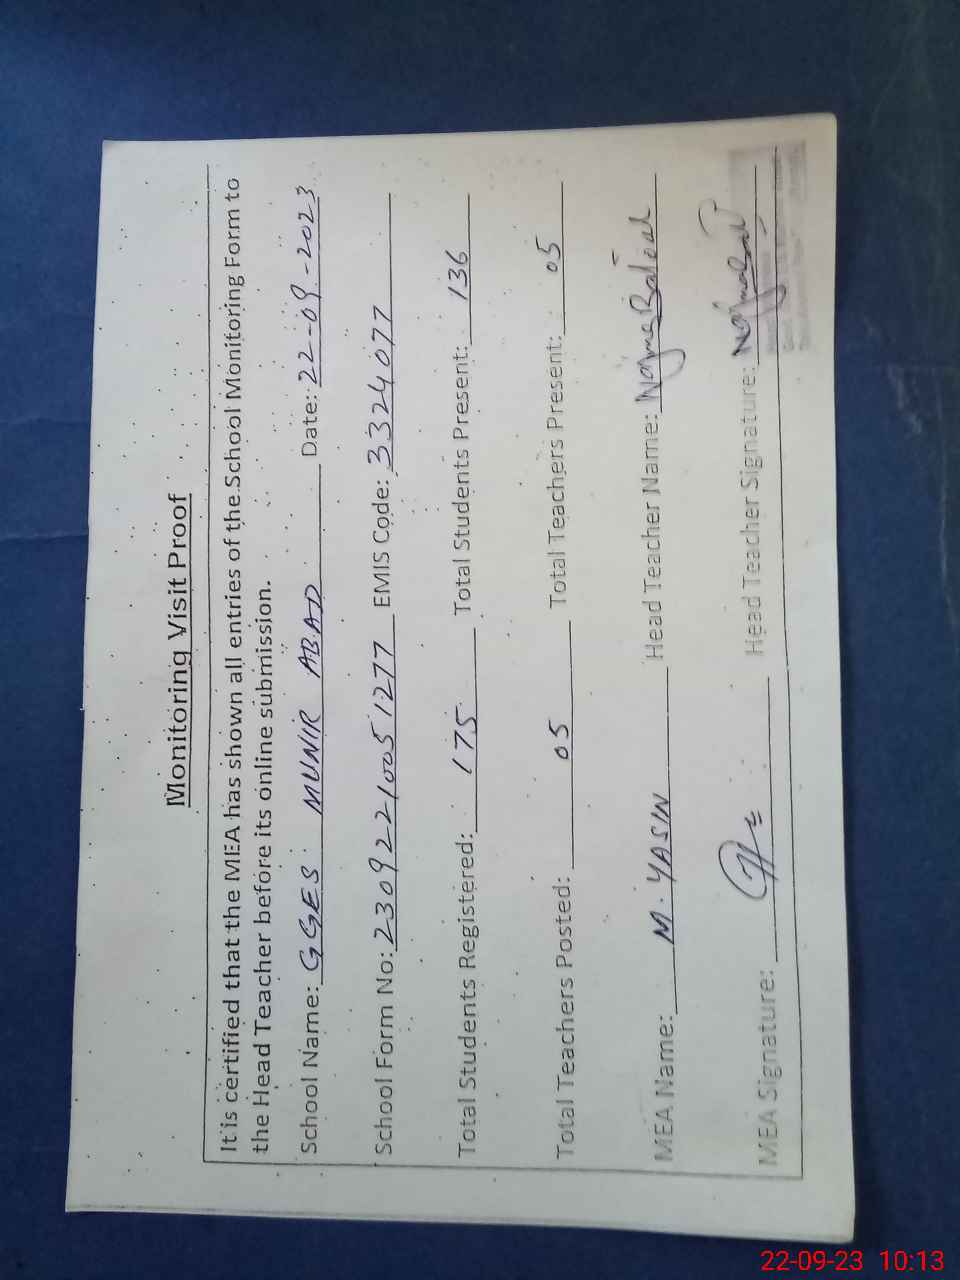 Monitoring Visit Proof
It is certified that the MEA has shown all entries of the School Monitoring Form to
the Head Teacher before its online submission.
School Name: GGES MUNIR ABAD Date: 22-09-2023
School Form No: 23092210051277 EMIS Code: 33324077
Total Students Registered: 175 Total Students Present: 136
Total Teachers Posted: 05 Total Teachers Present: 05
MEA Name: M. YASIN Head Teacher Name: Najma Batool
MEA Signature: Head Teacher Signature:
22-09-23 10:13